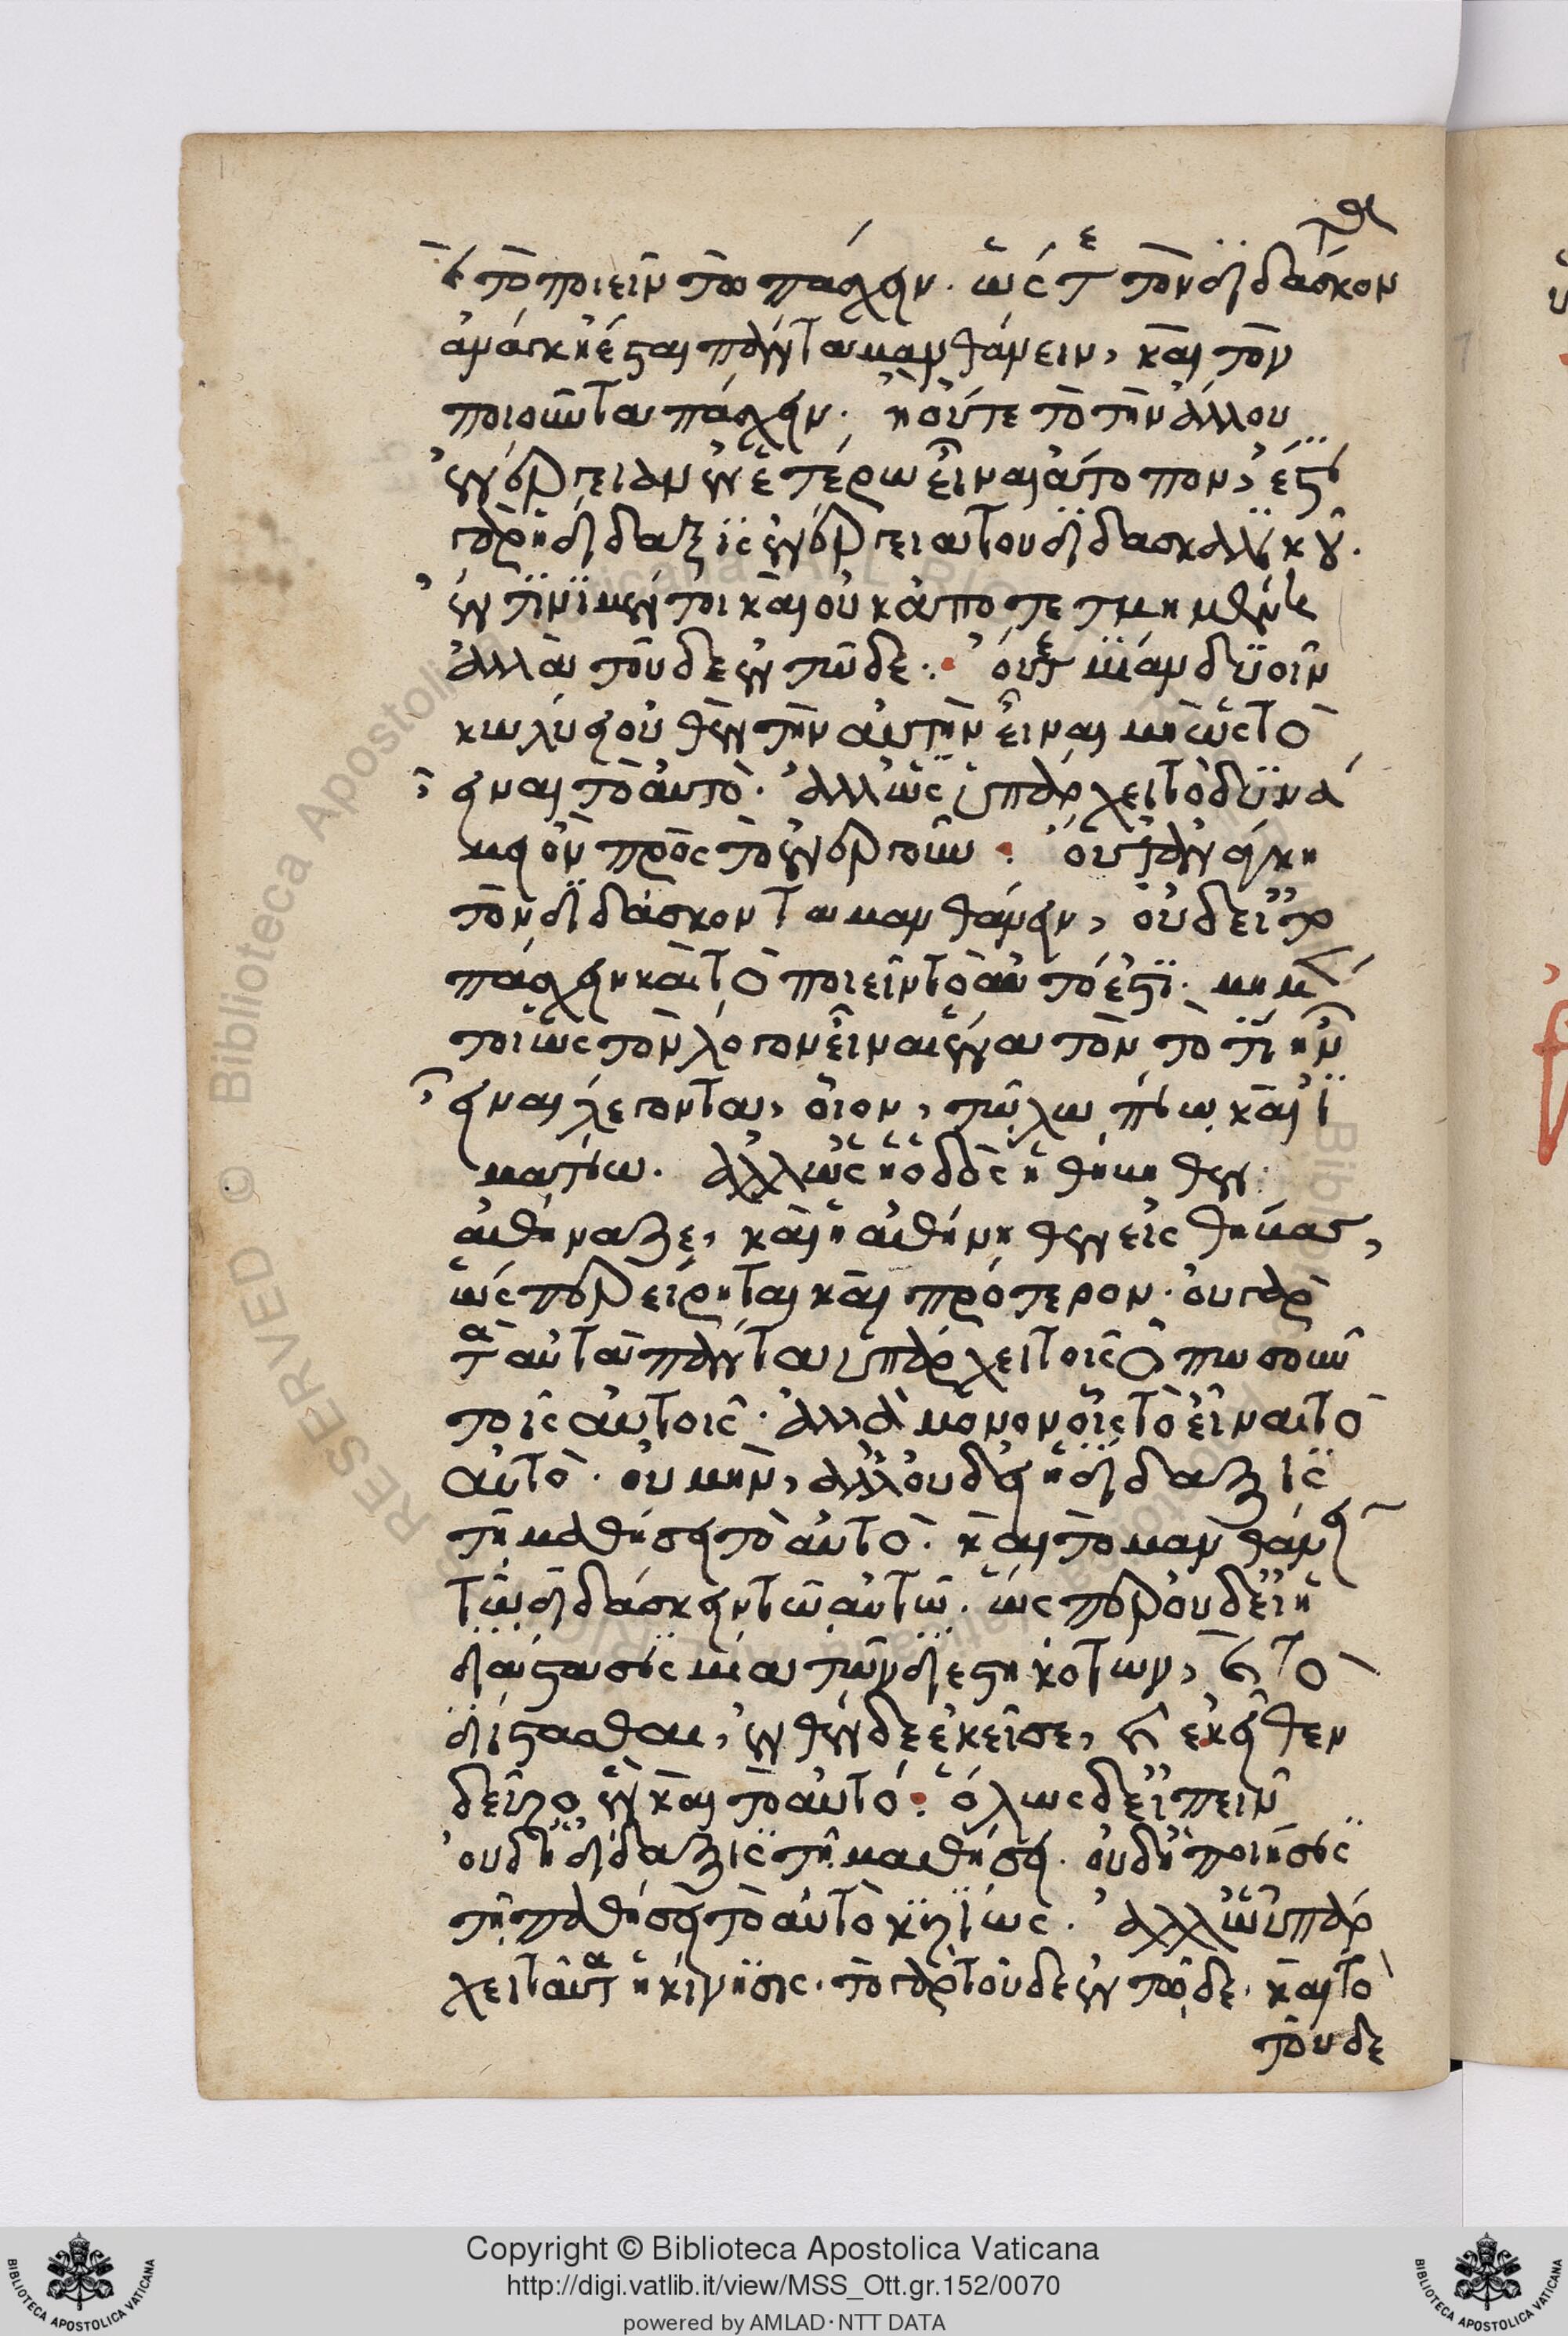 κ(αὶ) τὸ ποιεῖν τῶ πάσχειν. ὥςτε τὸν διδάσκον
ἀνάγκη ἔσται πάντα μανθάνειν, καὶ τὸν
ποιοῦντα πάσχειν. ἢ οὔτε τὸ τὴν ἄλλου
ἐνέργειαν ἐν ἑτέρω εἶναι ἄτοπον, ἔστι
γὰρ ἡ δίδαξις ἐνέργεια τοῦ διδασκαλικοῦ.
ἔν τινι μέντοι καὶ οὐκ ἀποτετμημένη
ἀλλὰ τοῦδε ἐν τῶδε. οὔτε μίαν δυοῖν
κωλύει οὐθὲν τὴν αὐτὴν εἶναι μὴ ὡς τὸ
εἶναι τὸ αὐτό. ἀλλ' ὡς ὑπάρχει τὸ δυνά
μει ὂν πρὸς τὸ ἐνεργοῦν. οὔτ' ἀνάγκη
τὸν διδάσκοντα μανθάνειν, οὐδ' εἰ τὸ
πάσχειν καὶ τὸ ποιεῖν τὸ αὐτό ἐστι. μὴ μέν
τοι ὡς τὸν λόγον εἶναι ἕνα τὸν τὸ τί ἦν
εἶναι λέγοντα, οἷον, τῶ λωπίω καὶ ἱ
ματίω. ἀλλ' ὡς ἡ ὁδὸς ἡ θήβηθεν
ἀθήναζε, καὶ ἡ ἀθήνηθεν εἰς θήβας,
ὥςπερ εἴρηται καὶ πρότερον. οὐ γὰρ
ταὐτὰ πάντα ὑπάρχει τοῖς ὁπωσοῦν
τοῖς αὐτοῖς. ἀλλὰ μόνον οἷς τὸ εἶναι τὸ
αὐτό. οὐ μὴν, ἀλλ' οὐδ' εἰ ἡ δίδαξις
τῆ μαθήσει τὸ αὐτό. καὶ τὸ μανθάνειν
τῶ διδάσκειν τῶ αὐτῶ. ὥςπερ οὐδ' εἰ ἡ
διάστασις μία τῶν διεστηκότων, καὶ τὸ
διίστασθαι, ἐνθένδε ἐκεῖσε, καὶ ἐκεῖθεν
δεῦρο ἓν καὶ τὸ αὐτό. ὅλως δ' εἰπεῖν
οὐδ' ἡ δίδαξις τῆ μαθήσει. οὐδ' ἡ ποίησις
τῆ παθήσει τὸ αὐτὸ κυρίως. ἀλλ' ὧ ὑπάρ
χει ταῦτα ἡ κίνησις. τὸ γὰρ τοῦδε ἐν τῶδε. καὶ τὸ
τοῦδε
Copyright © Biblioteca Apostolica Vaticana
http://digi.vatlib.it/view/MSS_Ott.gr.152/0070
powered by AMLAD·NTT DATA